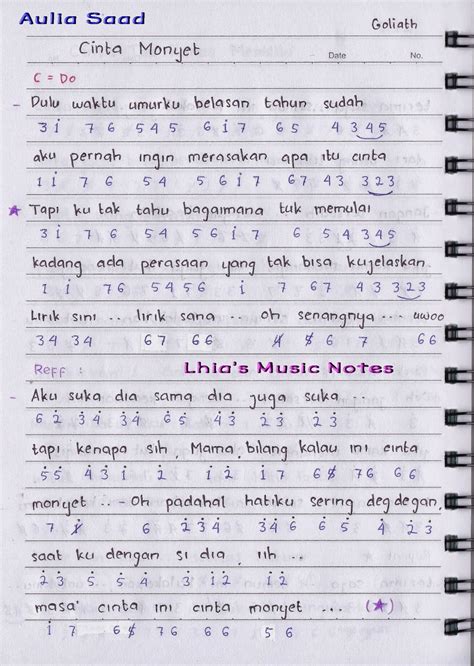 Aulia Saad
Goliath
Cinta Monyet
Date No.
C = Do
- Dulu waktu umurku belasan tahun sudah
3 i 7 6 5 4 5 6 i 7 6 5 4 3 4 5
aku pernah ingin merasakan apa itu cinta
1 i 7 6 5 4 5 6 i 7 6 7 4 3 3 2 3
★ Tapi ku tak tahu bagaimana tuk memulai
3 i 7 6 5 4 5 6 i 7 6 5 4 3 4 5
kadang ada perasaan yang tak bisa kujelaskan
1 i 7 6 5 4 5 6 i 7 6 7 4 3 3 2 3
Lirik sini .. lirik sana .. oh senangnya .... uwoo
3 4 3 4 6 7 6 6 6 7 6 6
Reff :
Lhia's Music Notes
- Aku suka dia sama dia juga suka ..
tapi kenapa sih, Mama bilang kalau ini cinta
monyet ... - Oh padahal hatiku sering deg degan,
saat ku dengan si dia, iih ..
masa' cinta ini cinta monyet ... (★)